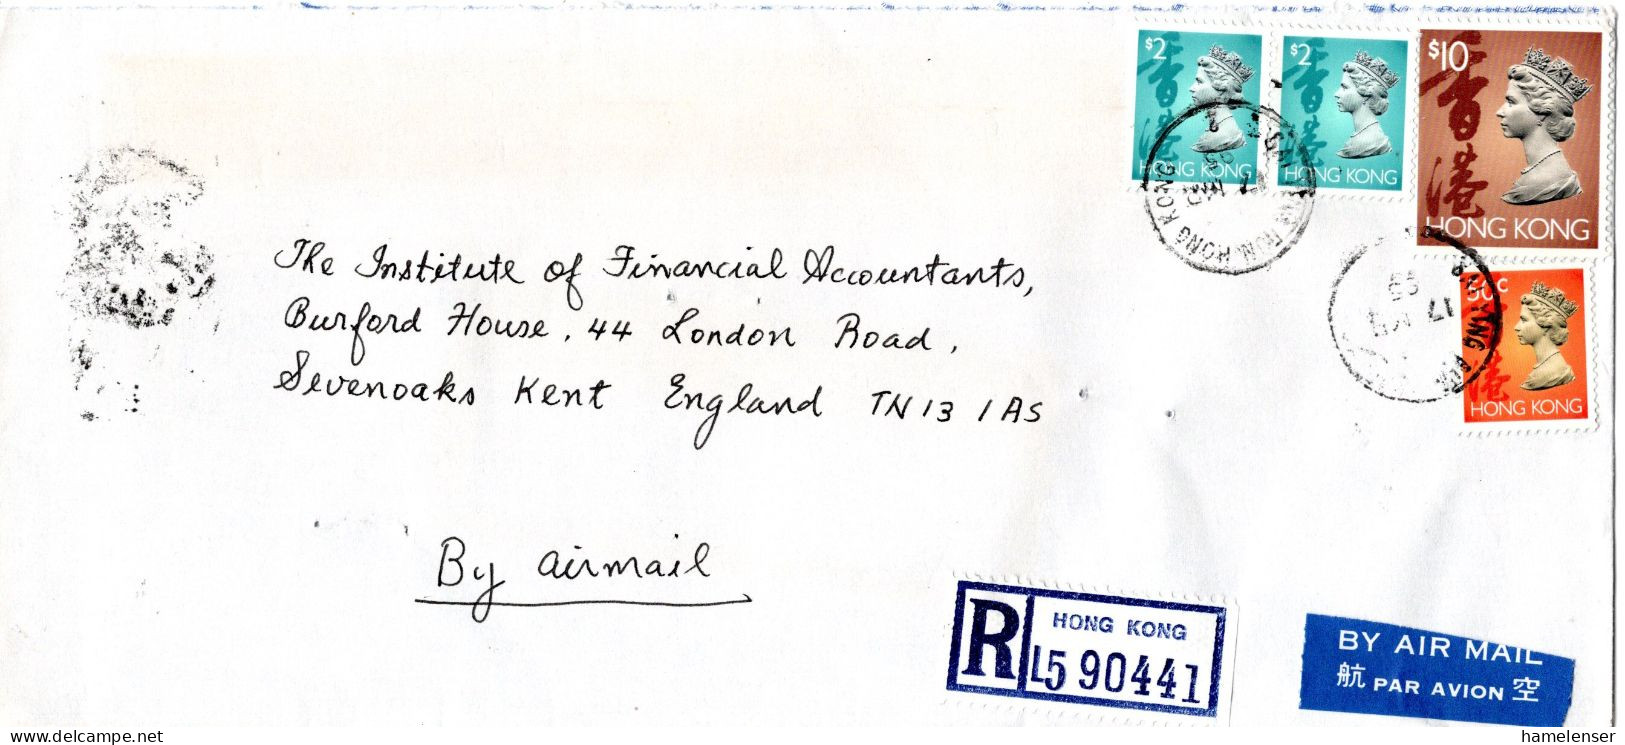 $2
香港
HONG KONG
$2
香港
HONG KONG
$10
香港
HONG KONG
50c
港
HONG KONG
HONG KONG
The Institute of Financial Accountants,
Burford House, 44 London Road,
Sevenoaks Kent England TN13 1AS
By airmail
R
HONG KONG
L5 90441
BY AIR MAIL
航 PAR AVION 空
www.delcampe.net
hamelenser